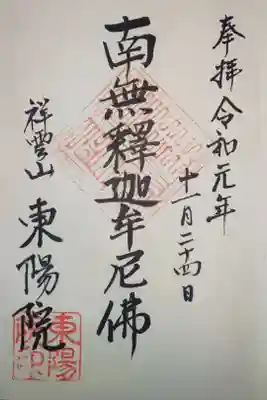 奉拝 令和元年
十一月二十四日
南無釋迦牟尼佛
祥雲山 東陽院
東陽